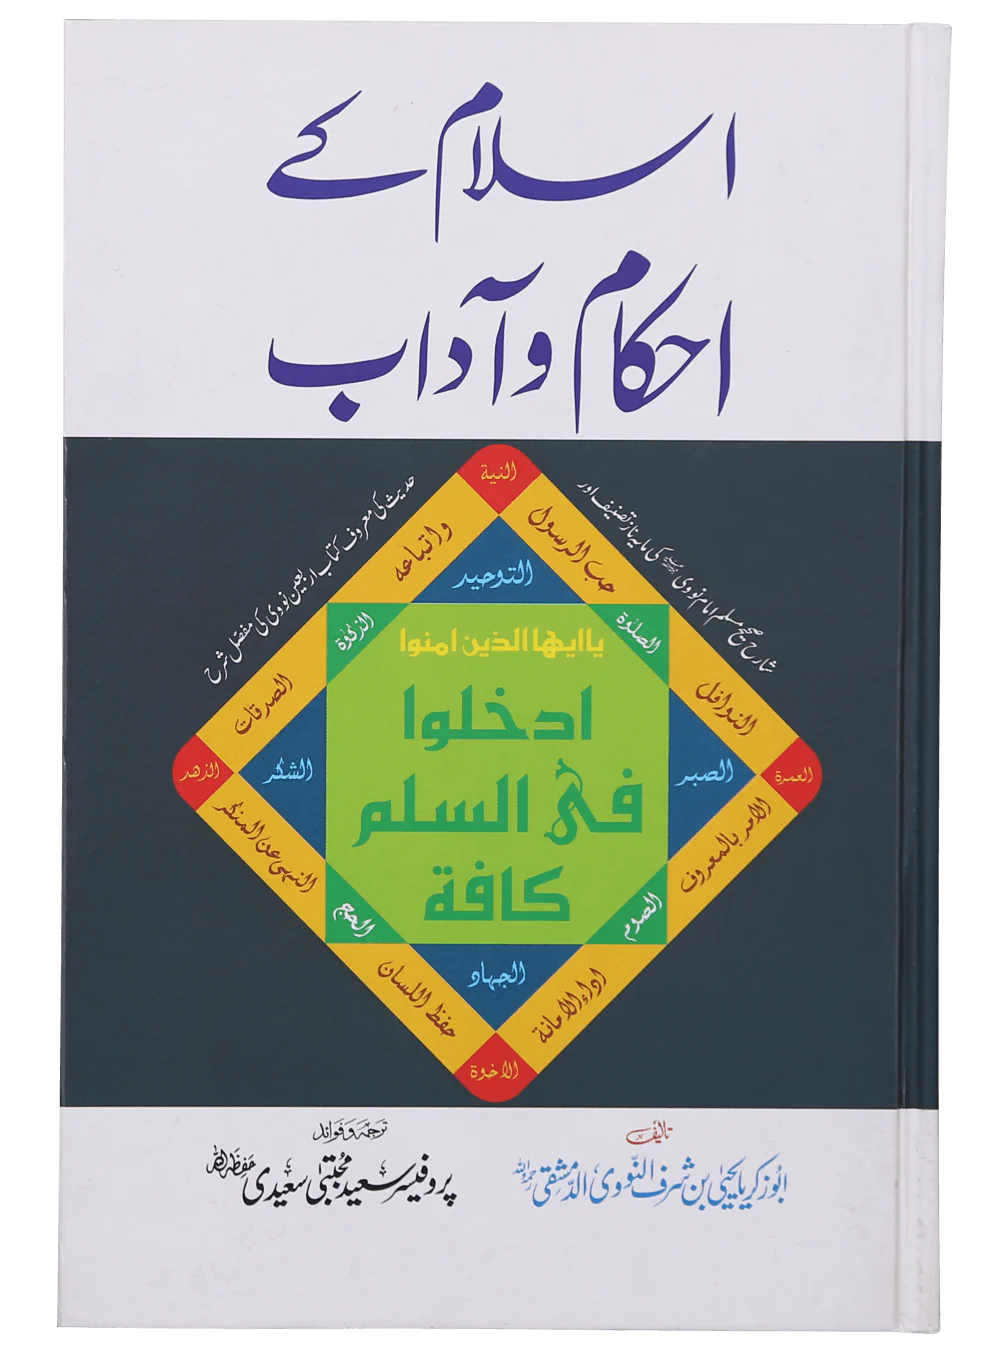 اسلام کے
احکام و آداب
شارح صحیح مسلم امام نووی رحمۃ اللہ علیہ کی مایہ ناز تصنیف اور
حدیث کی معروف کتاب اربعین نووی کی مفصل شرح
النية
حب الرسول
واتباعه
التوحيد
الصلوٰة
الزكوٰة
ياايها الذين امنوا
ادخلوا
فى السلم
كافة
النوافل
الصدقات
العمرة
الصبر
الشكر
الزهد
الامر بالمعروف
النهى عن المنكر
الصوم
الحج
الجهاد
اداء الامانة
حفظ اللسان
الاخوة
تالیف
ابوزکریا یحییٰ بن شرف النووی الدمشقی رحمہ اللہ
ترجمہ و فوائد
پروفیسر سعید مجتبیٰ سعیدی حفظہ اللہ